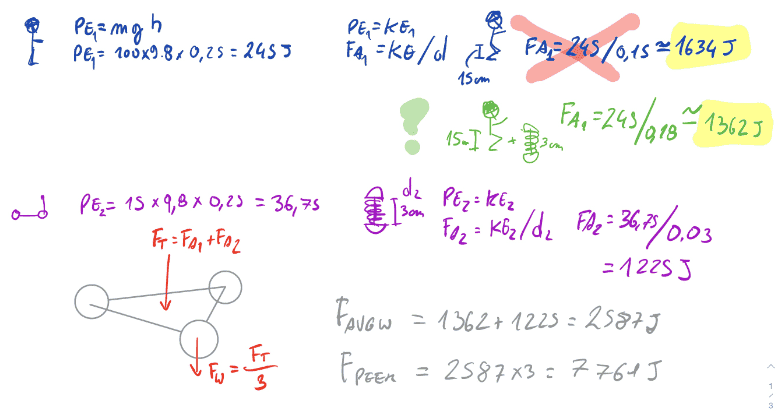 PE₁ = mgh
PE₁ = 100×9.8 × 0,25 = 245 J
PE₁ = KE₁
FA₁ = KE/d
15cm
FA₁ = 245/0,15 ≃ 1634 J
?
15cm + 3cm
FA₁ = 245/0,18 ≃ 1362 J
PE₂ = 15 × 9,8 × 0,25 = 36,75
d₂
3cm
PE₂ = KE₂
FA₂ = KE₂/d₂
FA₂ = 36,75/0,03
= 1225 J
F_T = FA₁ + FA₂
F_W = F_T/3
F_AVGW = 1362 + 1225 = 2587 J
F_PEEK = 2587 × 3 = 7761 J
1
3